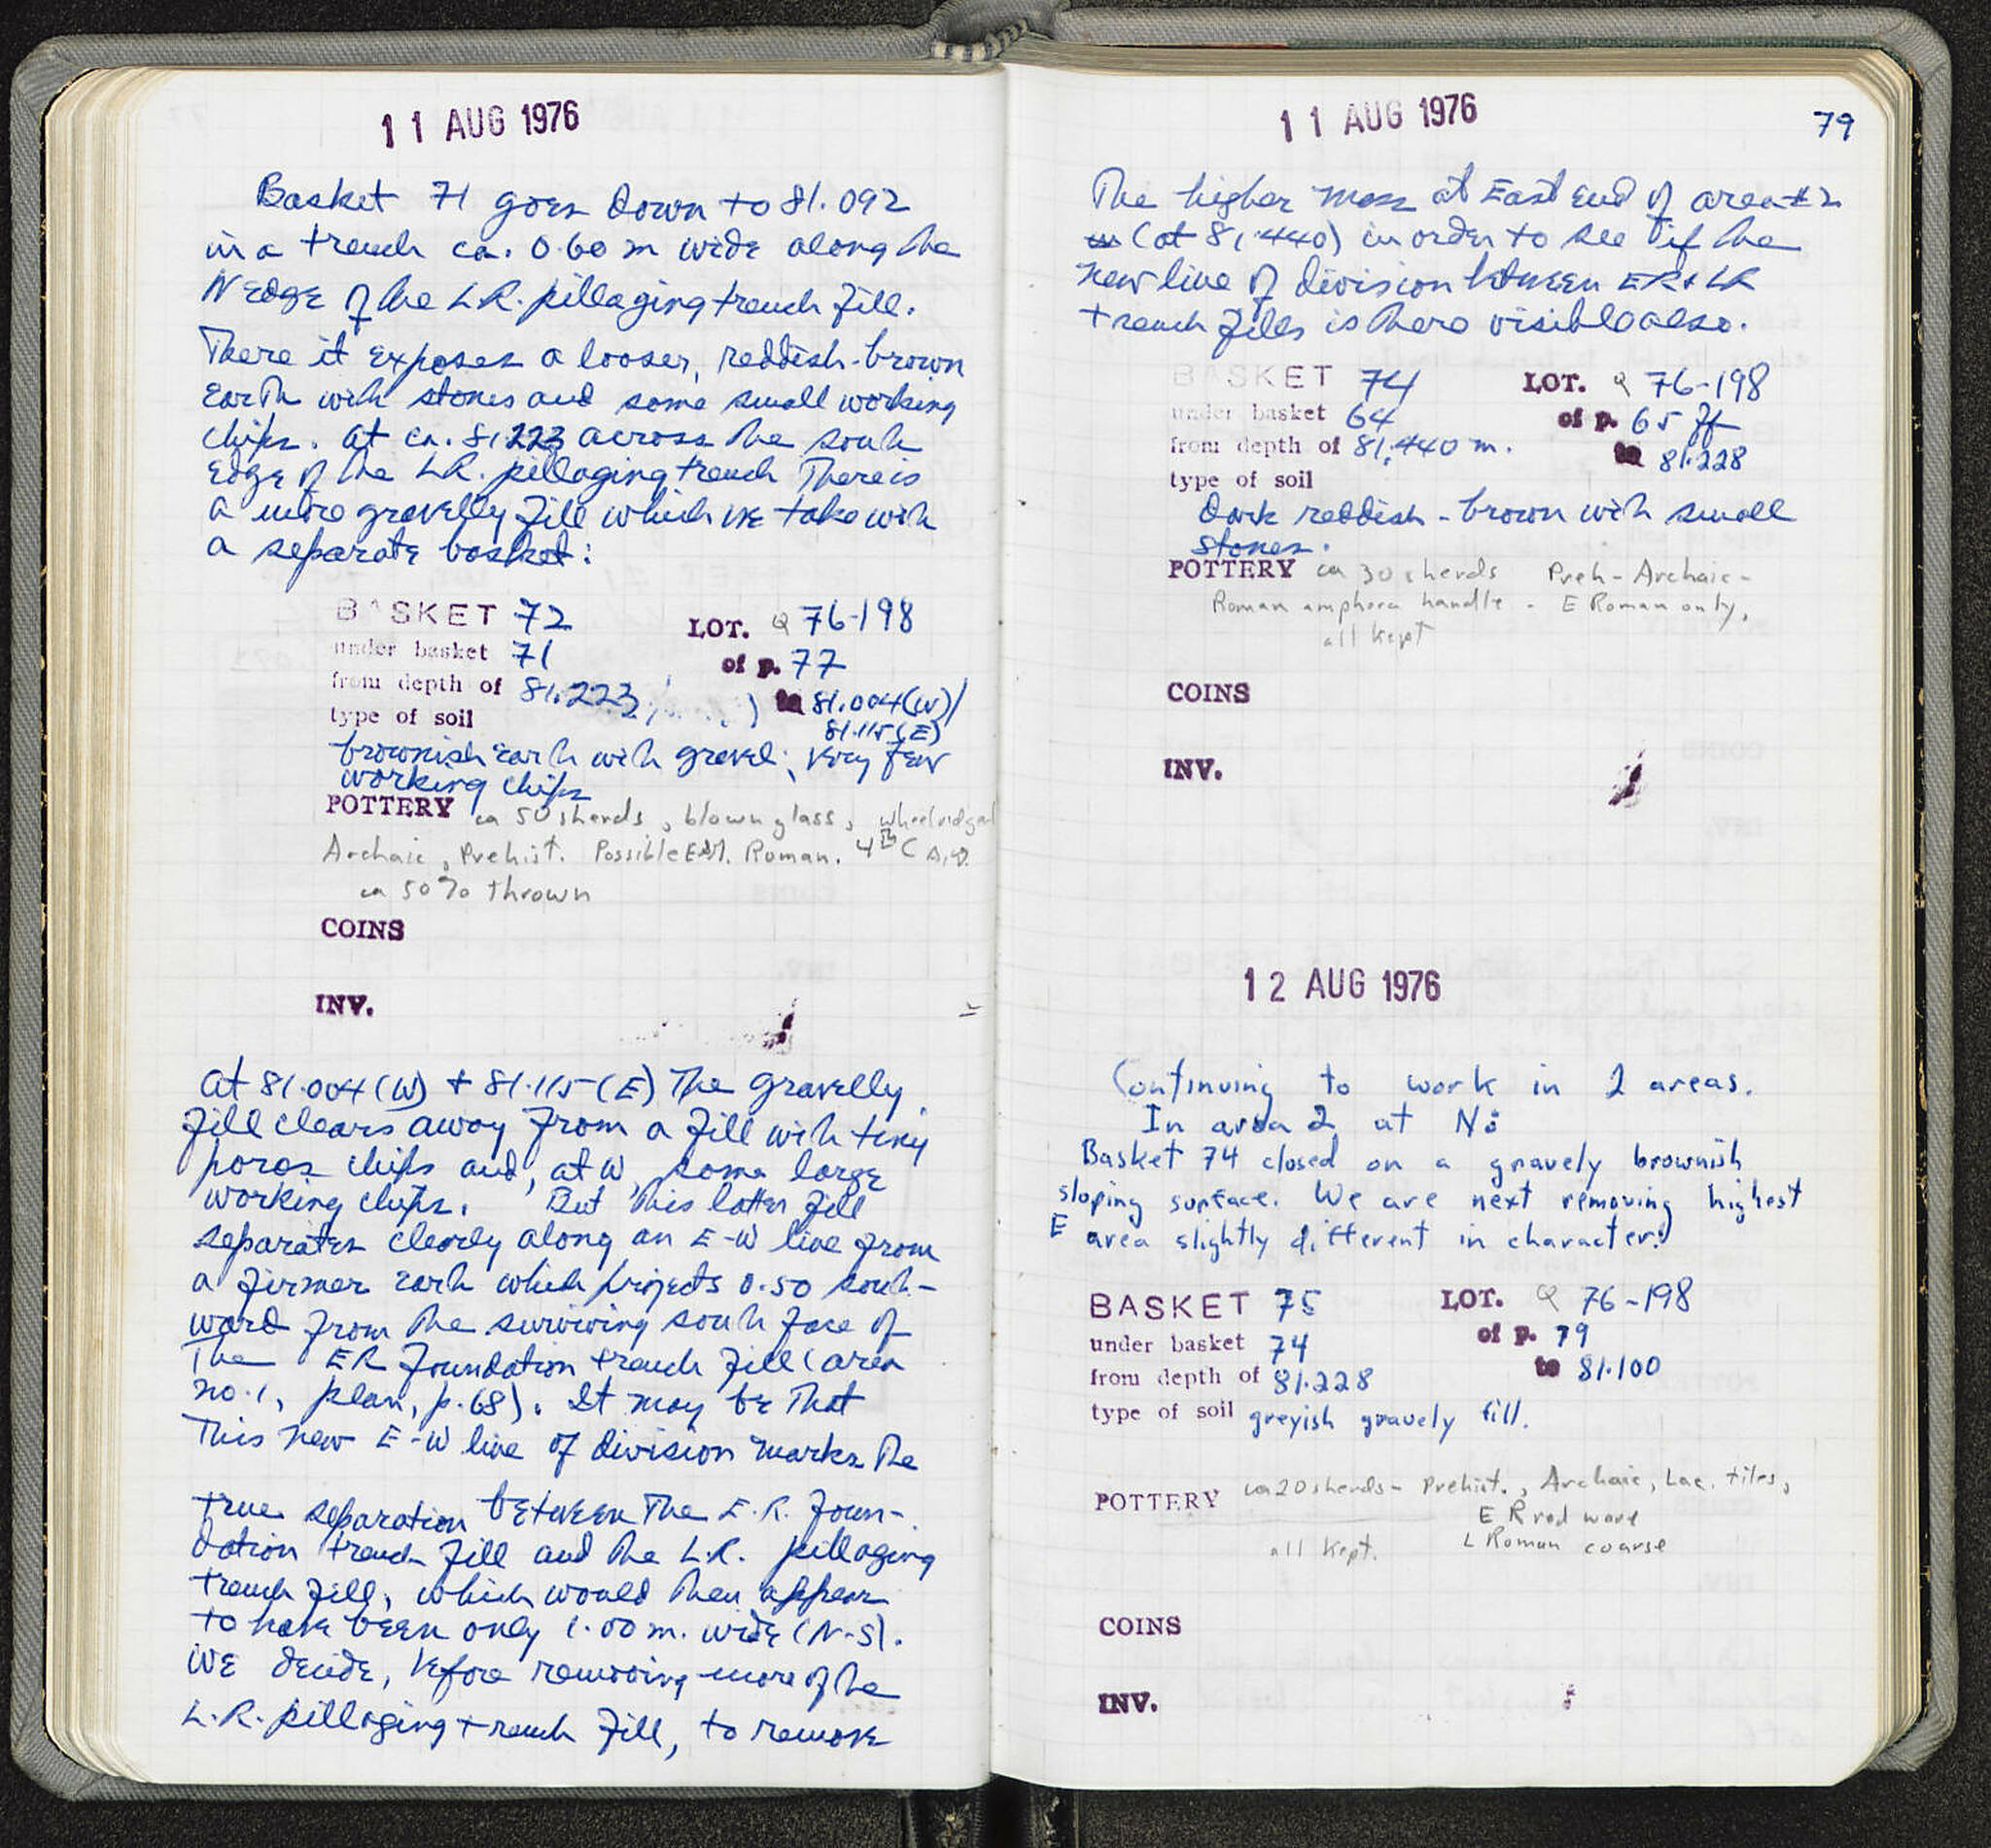 11 AUG 1976
Basket 71 goes down to 81.092
in a trench ca. 0.60 m wide along the
N edge of the L.R. pillaging trench fill.
There it exposes a looser, reddish-brown
earth with stones and some small working
chips. At ca. 81.223 across the south
edge of the L.R. pillaging trench There is
a more gravelly fill which we take with
a separate basket:
BASKET 72 LOT. Q 76-198
under basket 71 of p. 77
from depth of 81.223 to 81.004(W)/
81.115(E)
type of soil
brownish earth with gravel; very few
working chips
POTTERY ca 50 sherds, blown glass, wheelridged
Archaic, Prehist. Possible Roman. 4th C A.D.
ca 50% thrown
COINS
INV.
At 81.004(W) + 81.115(E) The gravelly
fill clears away from a fill with tiny
poros chips and, at W, some large
working chips. But this latter fill
separates clearly along an E-W line from
a firmer earth which projects 0.50 south-
ward from the surviving south face of
The ER foundation trench fill (area
no. 1, plan, p. 68). It may be that
This new E-W line of division marks the
true separation between The E.R. foun-
dation trench fill and the L.R. pillaging
trench fill, which would then appear
to have been only 1.00 m. wide (N-S).
We decide, before removing more of the
L.R. pillaging trench fill, to remove
11 AUG 1976
79
The higher mass at East end of area #2
(at 81.440) in order to see if the
new line of division between ER + LR
trench fills is there visible also.
BASKET 74 LOT. Q 76-198
under basket 64 of p. 65 ff
from depth of 81.440 m. to 81.228
type of soil
Dark reddish-brown with small
stones.
POTTERY ca 30 sherds Preh - Archaic -
Roman amphora handle - E Roman only.
all kept
COINS
INV.
12 AUG 1976
Continuing to work in 2 areas.
In area 2 at N:
Basket 74 closed on a gravely brownish
sloping surface. We are next removing highest
E area slightly different in character:
BASKET 75 LOT. Q 76-198
under basket 74 of p. 79
from depth of 81.228 to 81.100
type of soil greyish gravely fill.
POTTERY ca 20 sherds - Prehist., Archaic, Lac. tiles,
E R red ware
all kept. L Roman coarse
COINS
INV.